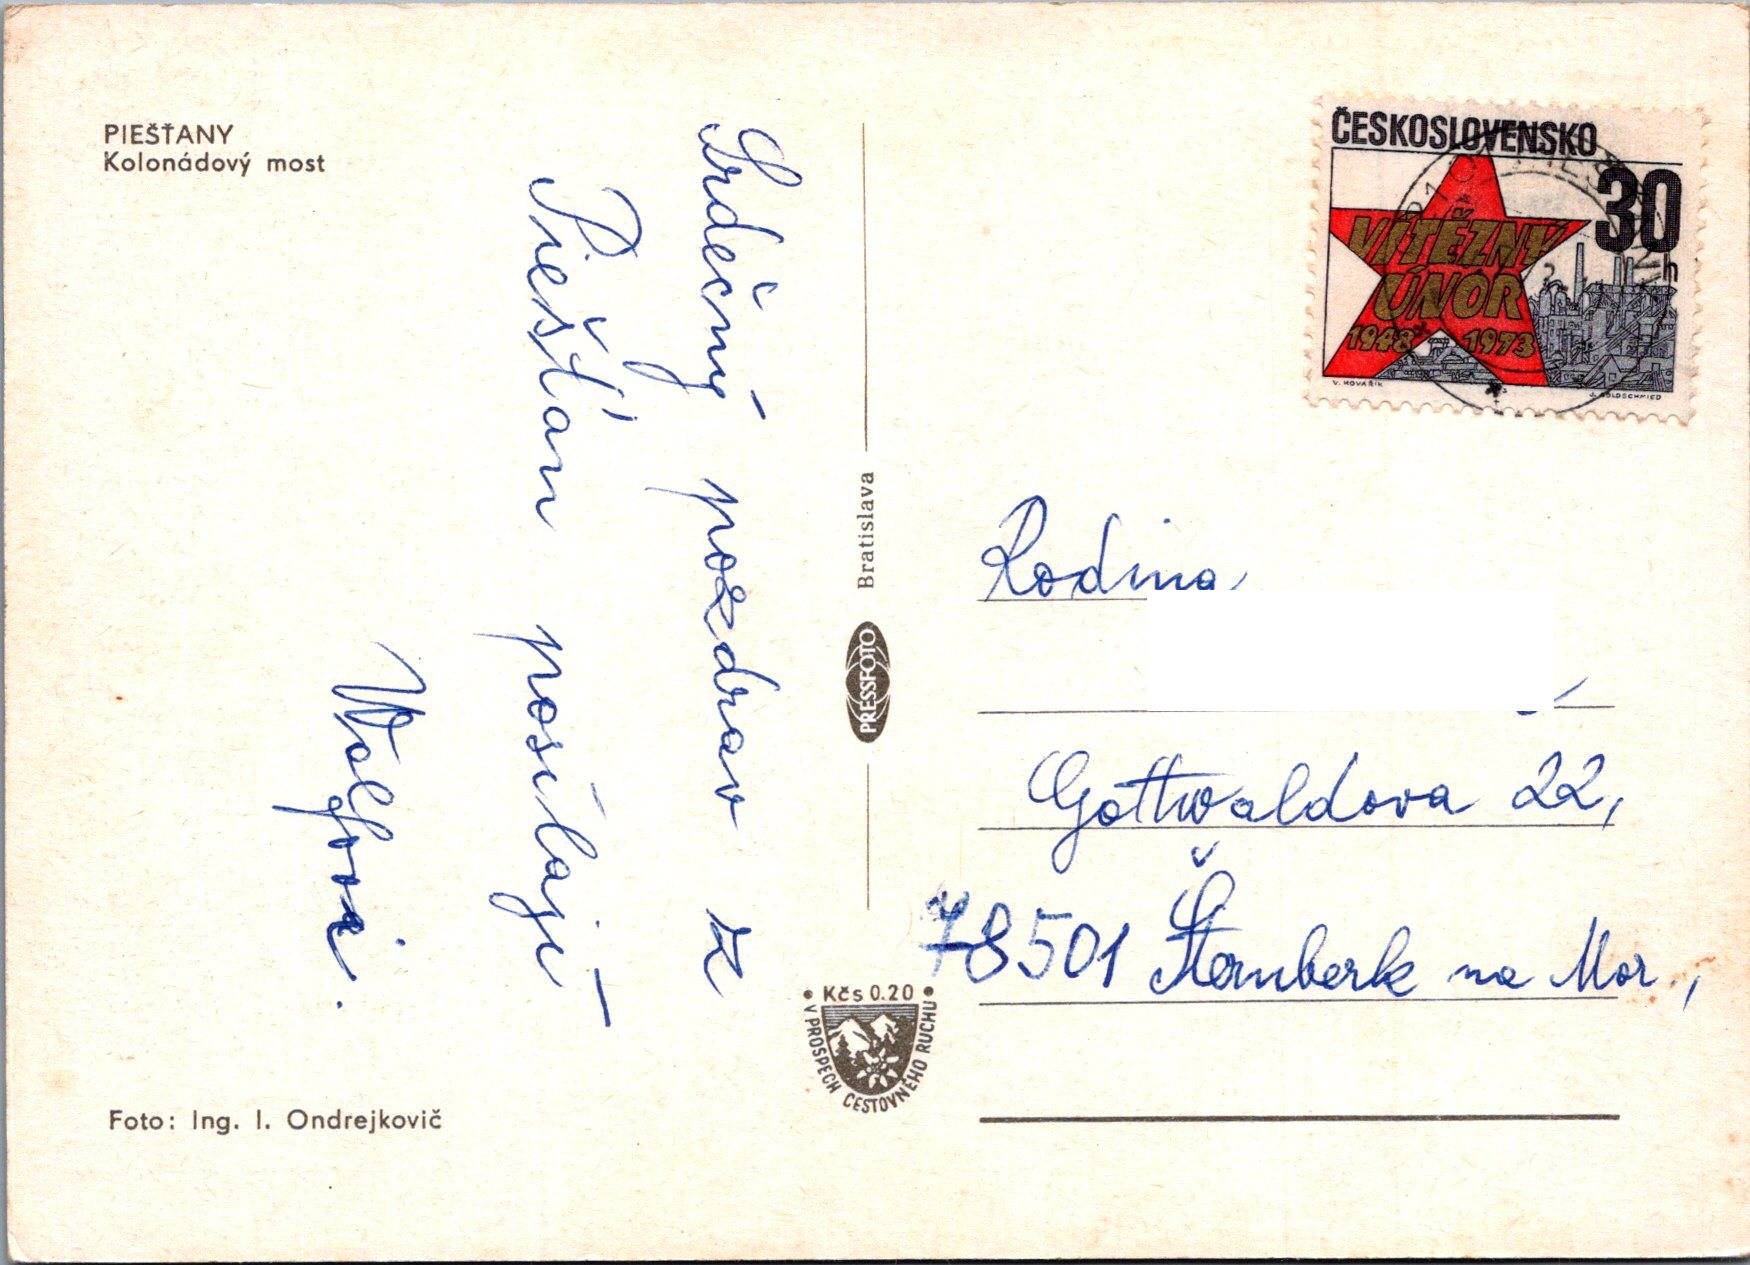 PIEŠŤANY
Kolonádový most
Srdečný pozdrav z
Piešťan posílají
Wolfovi.
Foto: Ing. I. Ondrejkovič
Bratislava
PRESSFOTO
Kčs 0.20
V PROSPECH CESTOVNÉHO RUCHU
ČESKOSLOVENSKO
30
h
VÍTĚZNÝ
ÚNOR
1948 1973
V. KOVAŘÍK
J. GOLDSCHMIED
Rodina
Gottwaldova 22,
78501 Šternberk na Mor.,